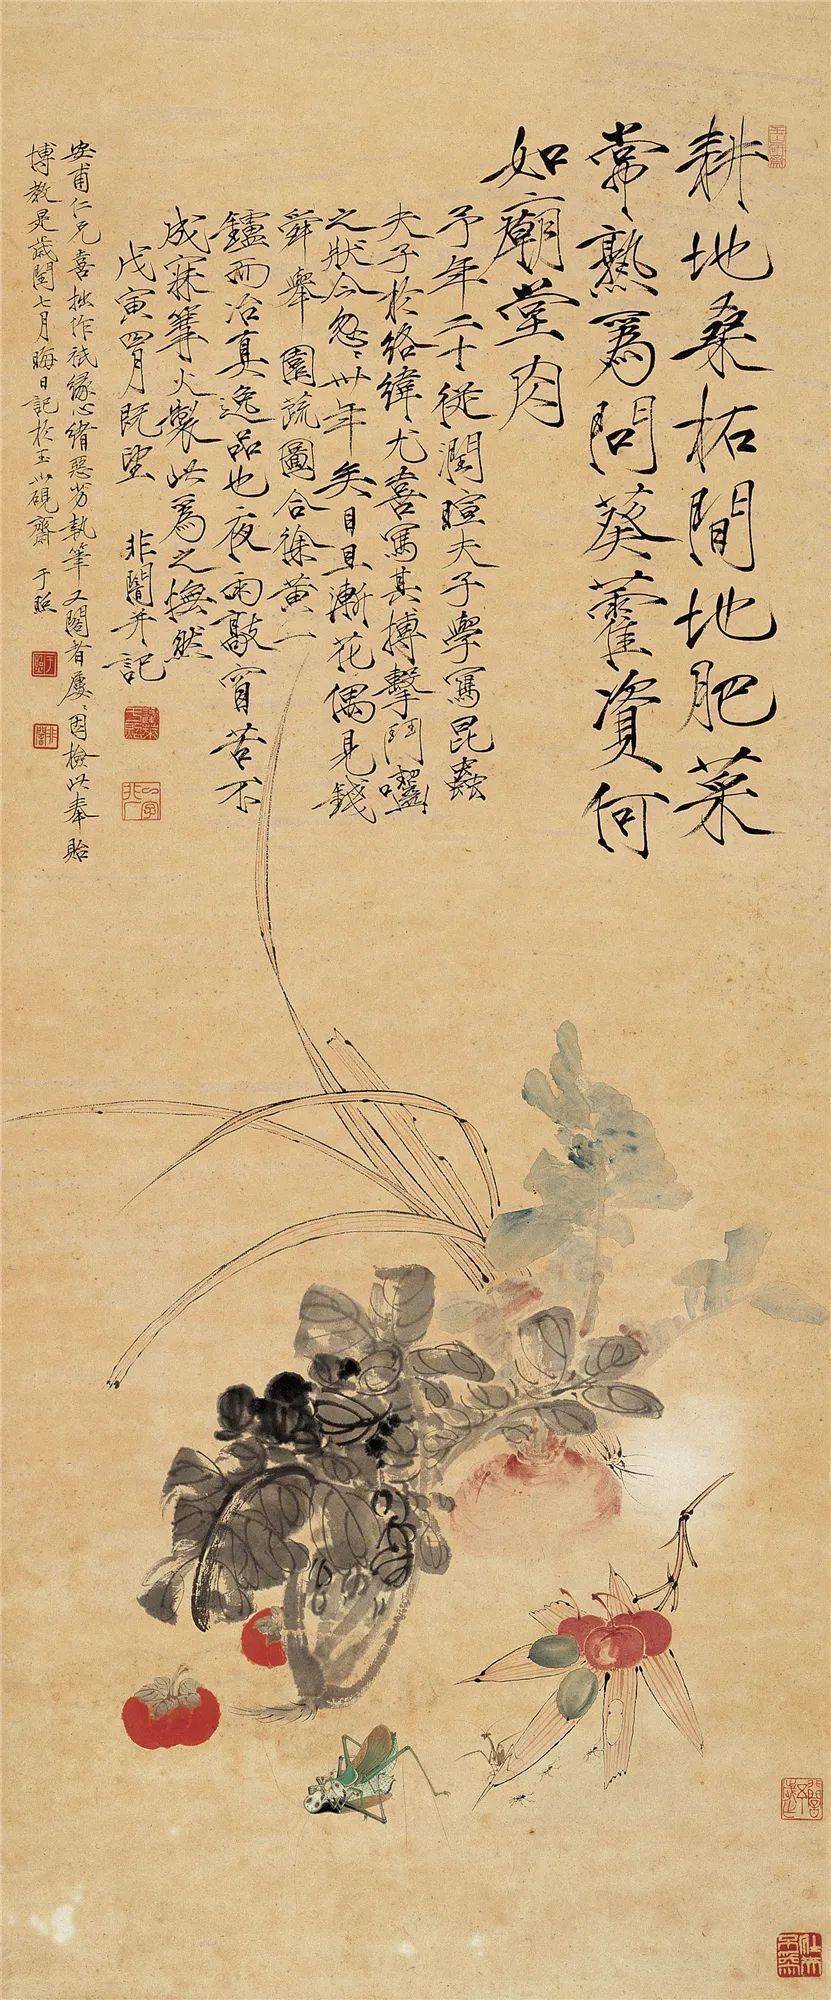 耕地桑柘間地肥菜
常熟為問葵藿資何
如廟堂肉
予年二十從潤暄夫子學寫昆蟲
夫子於絡緯尤喜寫其搏擊鬥囓
之狀今忽忽卅年矣目且漸花偶見錢
舜舉園蔬圖合徐黃一
鑪而冶真逸品也夜雨敲窗苦不
成寐篝火製此為之撫然
戊寅四月既望 非闇并記
安甫仁兄喜拙作祇緣心緒惡劣執筆又閣者屢屢因檢此奉貽
博教是歲閏七月晦日記於玉山硯齋 于照